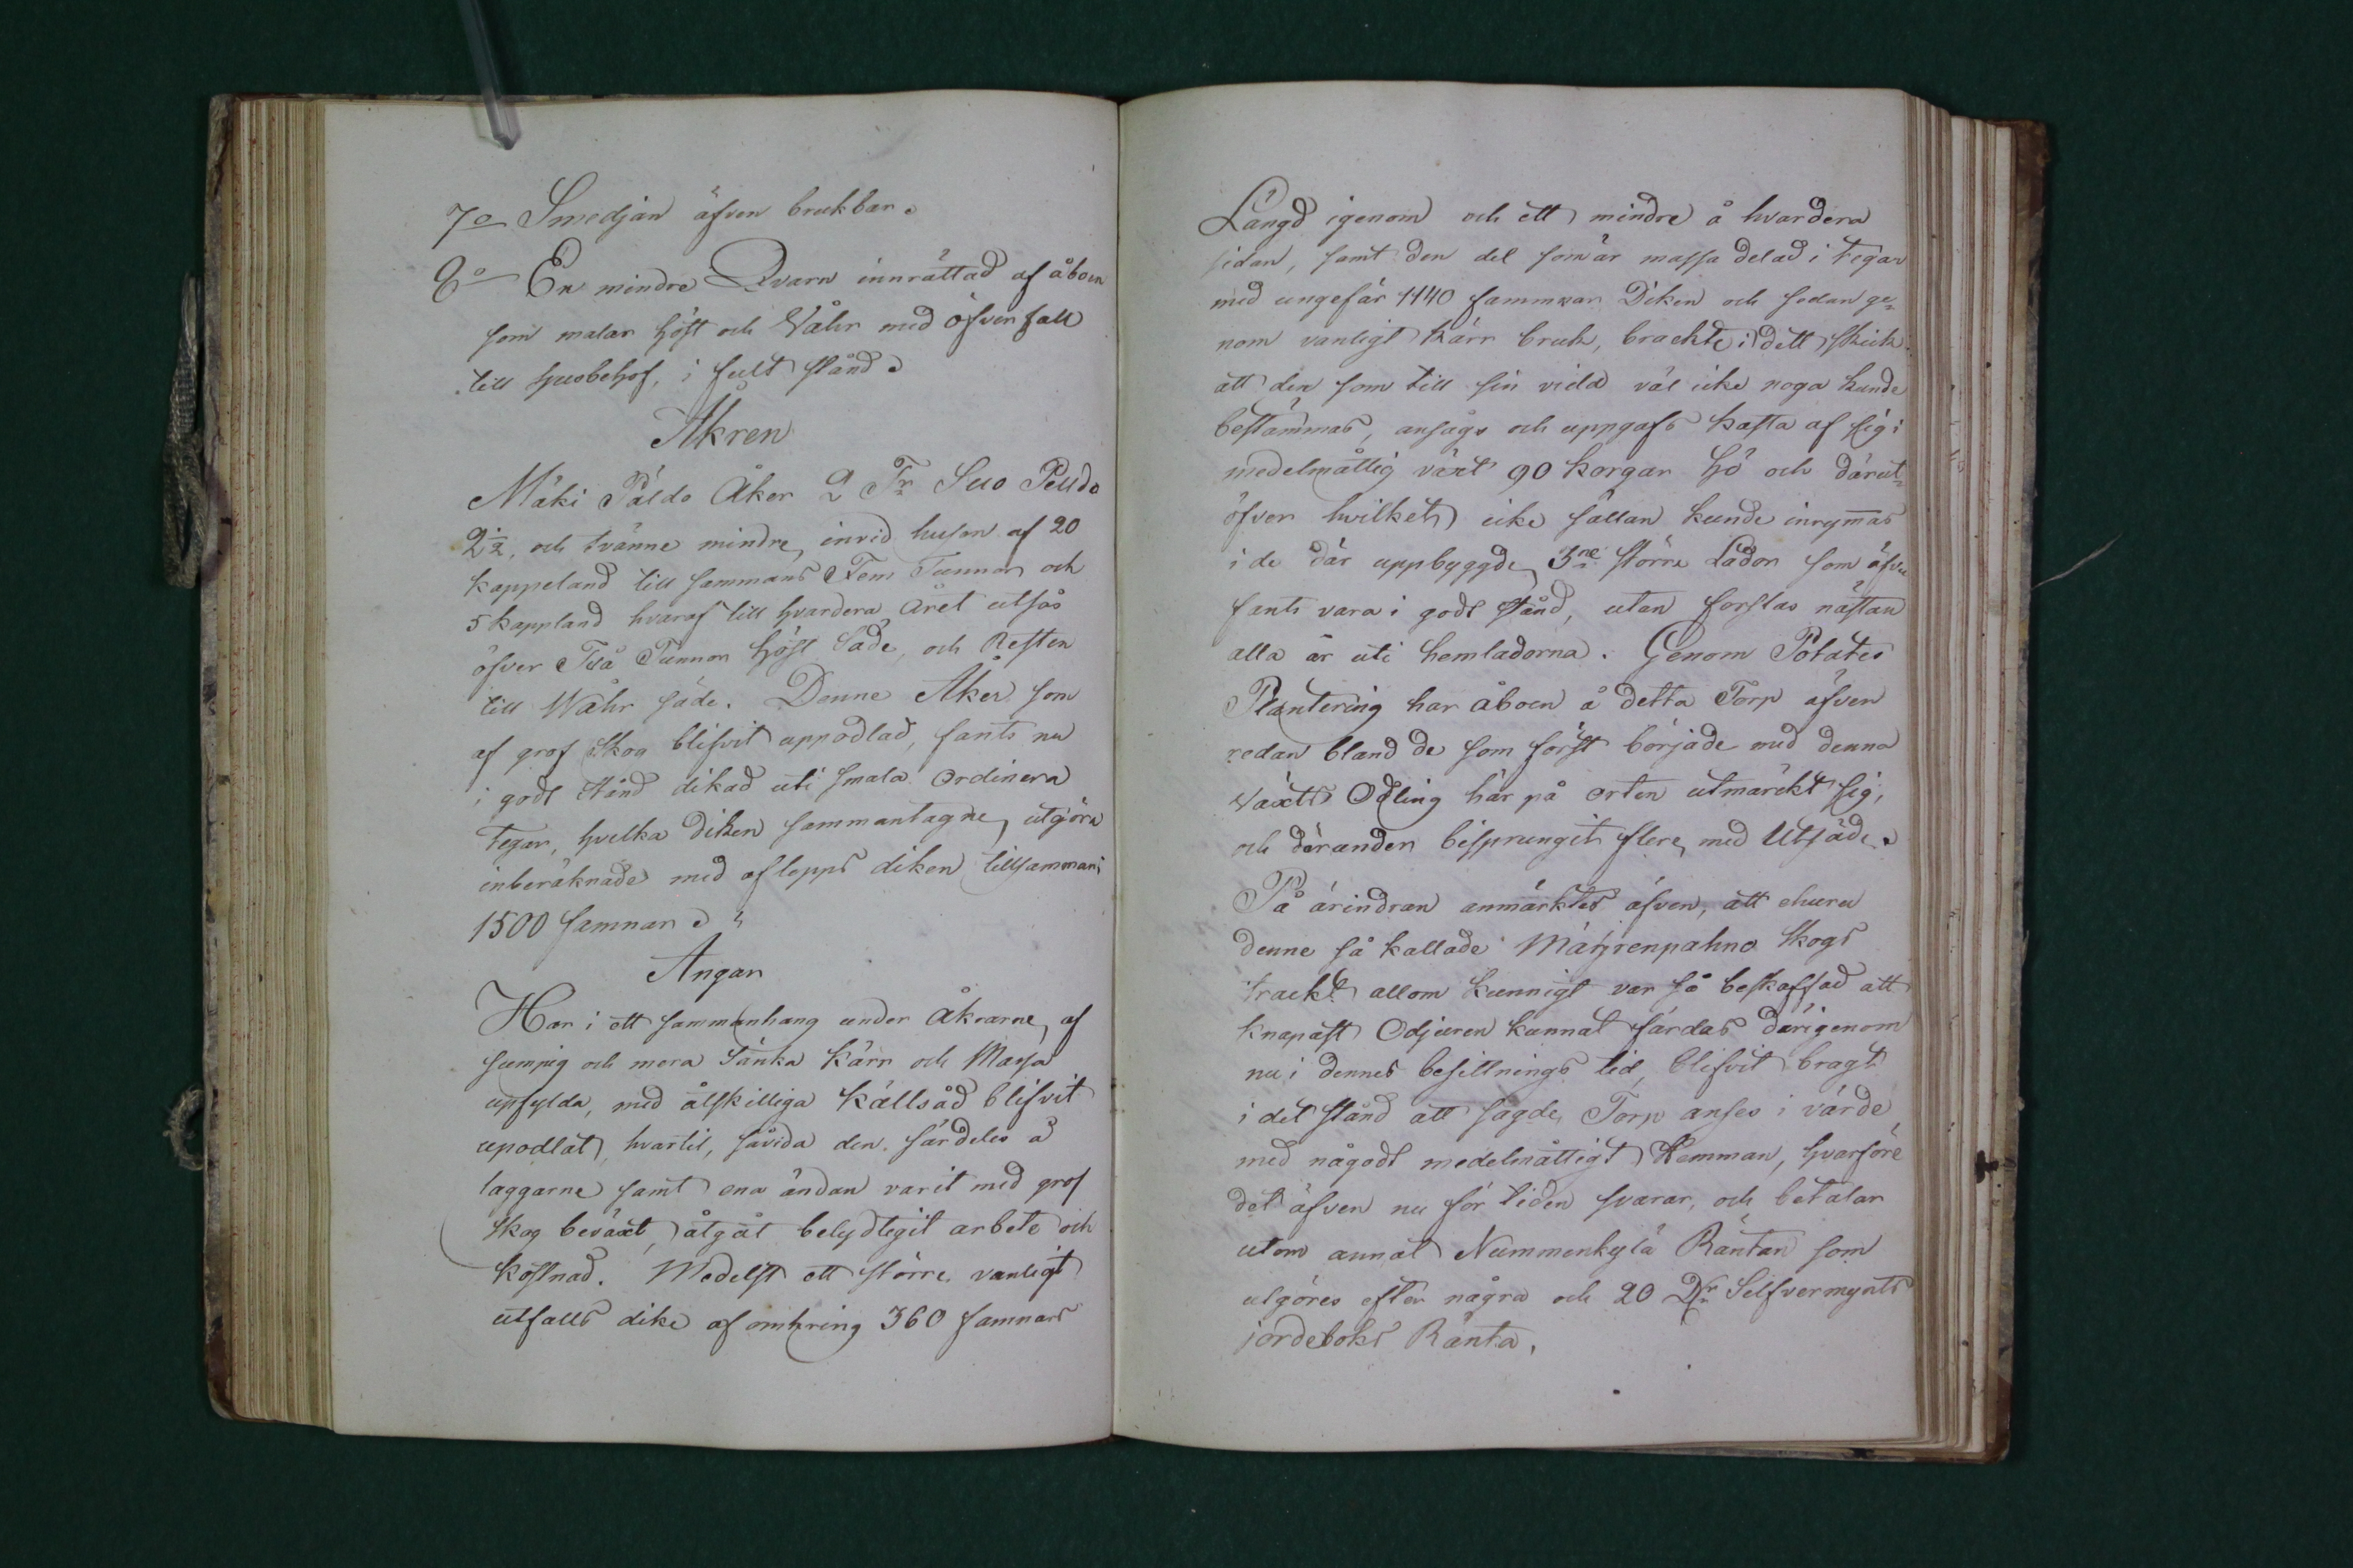 7o Smedjan äfven brukbar.
8o En mindre Qvarn innrättad af åboen
som malar höst och Våhr med öfverfall
till husbehof, i fult stånd.
Åkren
Mäki Päldo Åker 2 Tr Suo Peldo
2 1/2, och tvänne mindre, invid husen af 20
kappeland till sammans Fem Tunnor och
5 kappland hvaraf till hvardera Året utsås
öfver Två Tunnor höst Säde, och Resten
till Wåhr säde. Denne Åker som
af grof Skog blifvit uppodlad, fants nu
i godt stånd dikad uti smala ordinera
tegar, hvilka diken sammantagne, utgöra
inberäknade med aflopps diken tillsammans
1500 famnar.
Ängar
Har i ett sammanhang under Åkrarne, af
sumpig och mera Sänka kärr och Massa
upfylda, med åtskilliga källsåd blifvit
upodlat, hvartil, såvida den särdeles å
laggarne samt ena ändan varit med grof
Skog beväxt, åtgåt betydligit arbete och
kostnad. Medelst ett större vanligt
utfalls dike af omkring 360 famnars
Längd igenom och ett mindre å hvardera
sidan, samt den del som är massa delad i tegar
med ungefär 1140 fammnar Diken och sedan ge=
nom vanligt kärr bruk, brackte i dett skick
att den som till sin vidd väl icke noga kunde
bestämmas, ansågs och uppgafs kasta af sig i
medelmåttig växt 90 korgar hö och därut=
öfver hvilket icke sällan kunde inrymas
i de där uppbyggde 3ne större Lador som äfven
fants vara i godt stånd, utan förslas nästan
alla år uti hemladorna. Genom Potates
Plantering har åboen å detta Torp äfven
redan bland de som först började med denna
Växts Odling här på orten utmärckt sig,
och därunder bisprungit flere, med Utsäde.
På ärindran anmärktes äfven, att ehuru
denne så kallade Mäyrenpahno Skogs
trackt allom kunnigt var så beskaffad att
knapast Odjuren kunnat färdas därigenom
nu i dennes besittnings tid, blifvit bragt
i det stånd att sagde Torp anses i värde
med någodt medelmåttigt Hemman, hvarföre
det äfven nu för tiden svarar, och betalar
utom annat Nummenkylä Räntan som
utgöres efter några och 20 Dr Silfvermynts
jordeboks Ränta.